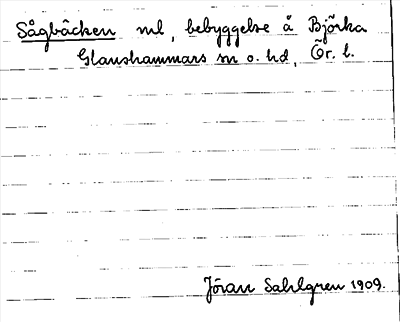 Sågbäcken ml, bebyggelse å Björka
Glanshammars sn o. hd, Ör. l.
Jöran Sahlgren 1909.